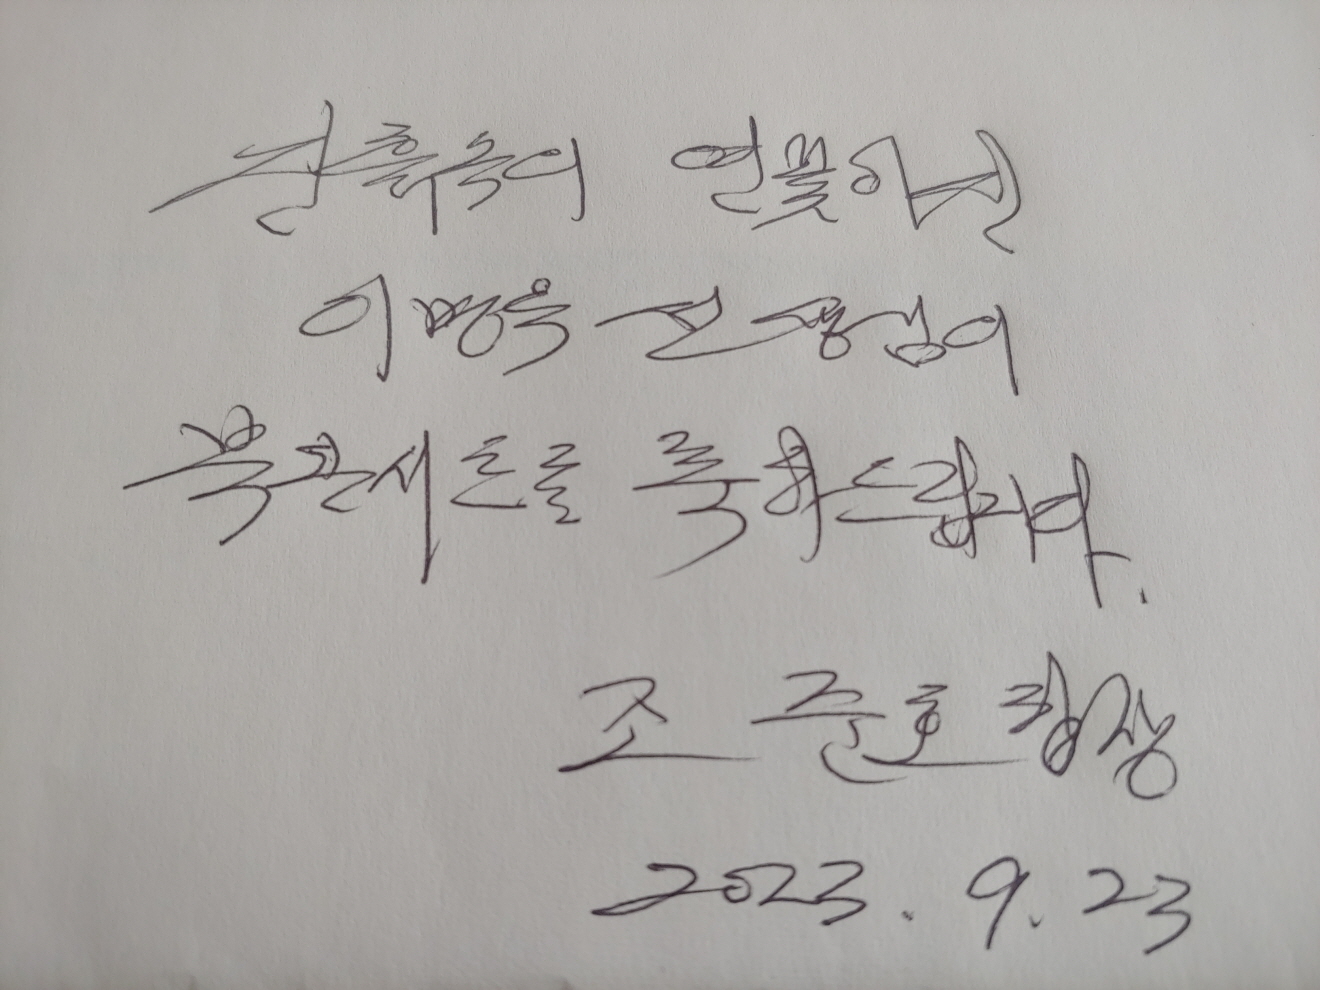 진흙속의 연꽃이신
이명옥 선생님의
북콘서트를 축하드립니다.
조 준호 합장
2023. 9. 23